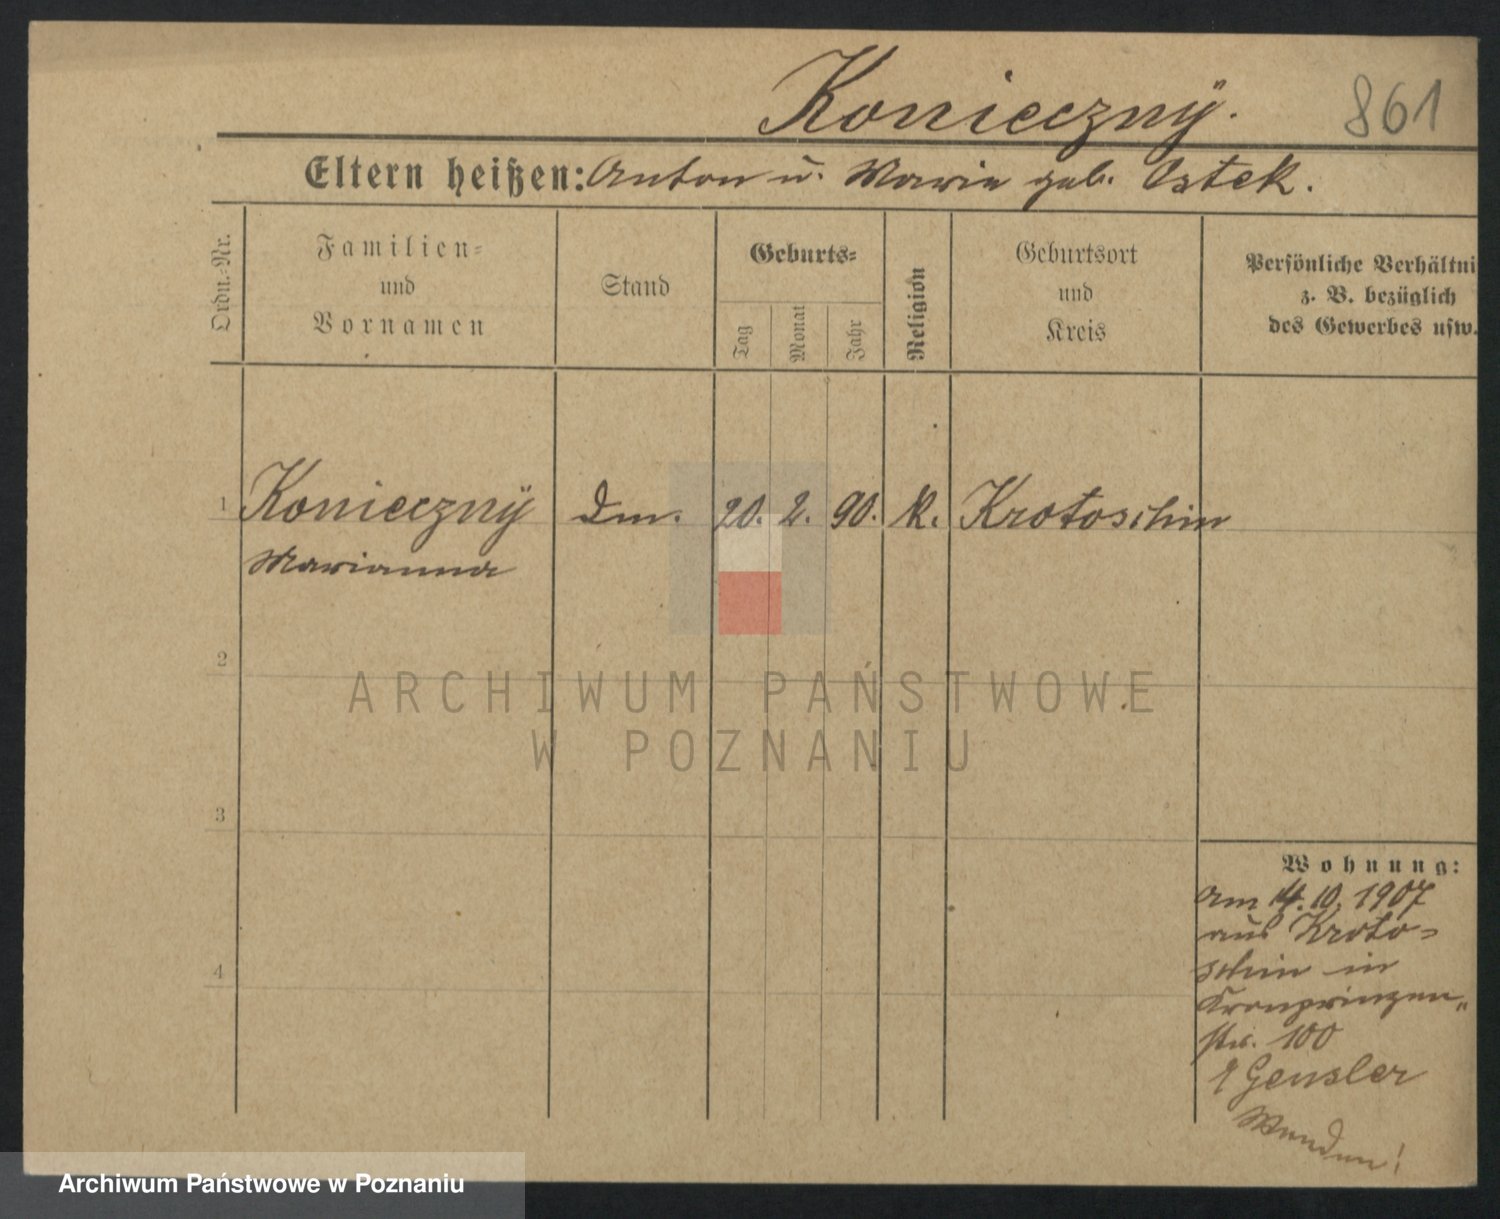 Konieczny.
861
Eltern heißen: Anton u. Maria geb. Ostek.
Ordn.-Nr.
Familien-
und
Vornamen
Stand
Geburts-
Tag
Monat
Jahr
Religion
Geburtsort
und
Kreis
Persönliche Verhältni
z. B. bezüglich
des Gewerbes usw.
1 Konieczny Dm. 20. 2. 90. K. Krotoschin
Marianna
2
ARCHIWUM PAŃSTWOWE
W POZNANIU
3
Wohnung:
am 14.10.1907
aus Kroto=
schin in
Kronprinzen„
str. 100
Gensler
4
Wenden!
Archiwum Państwowe w Poznaniu